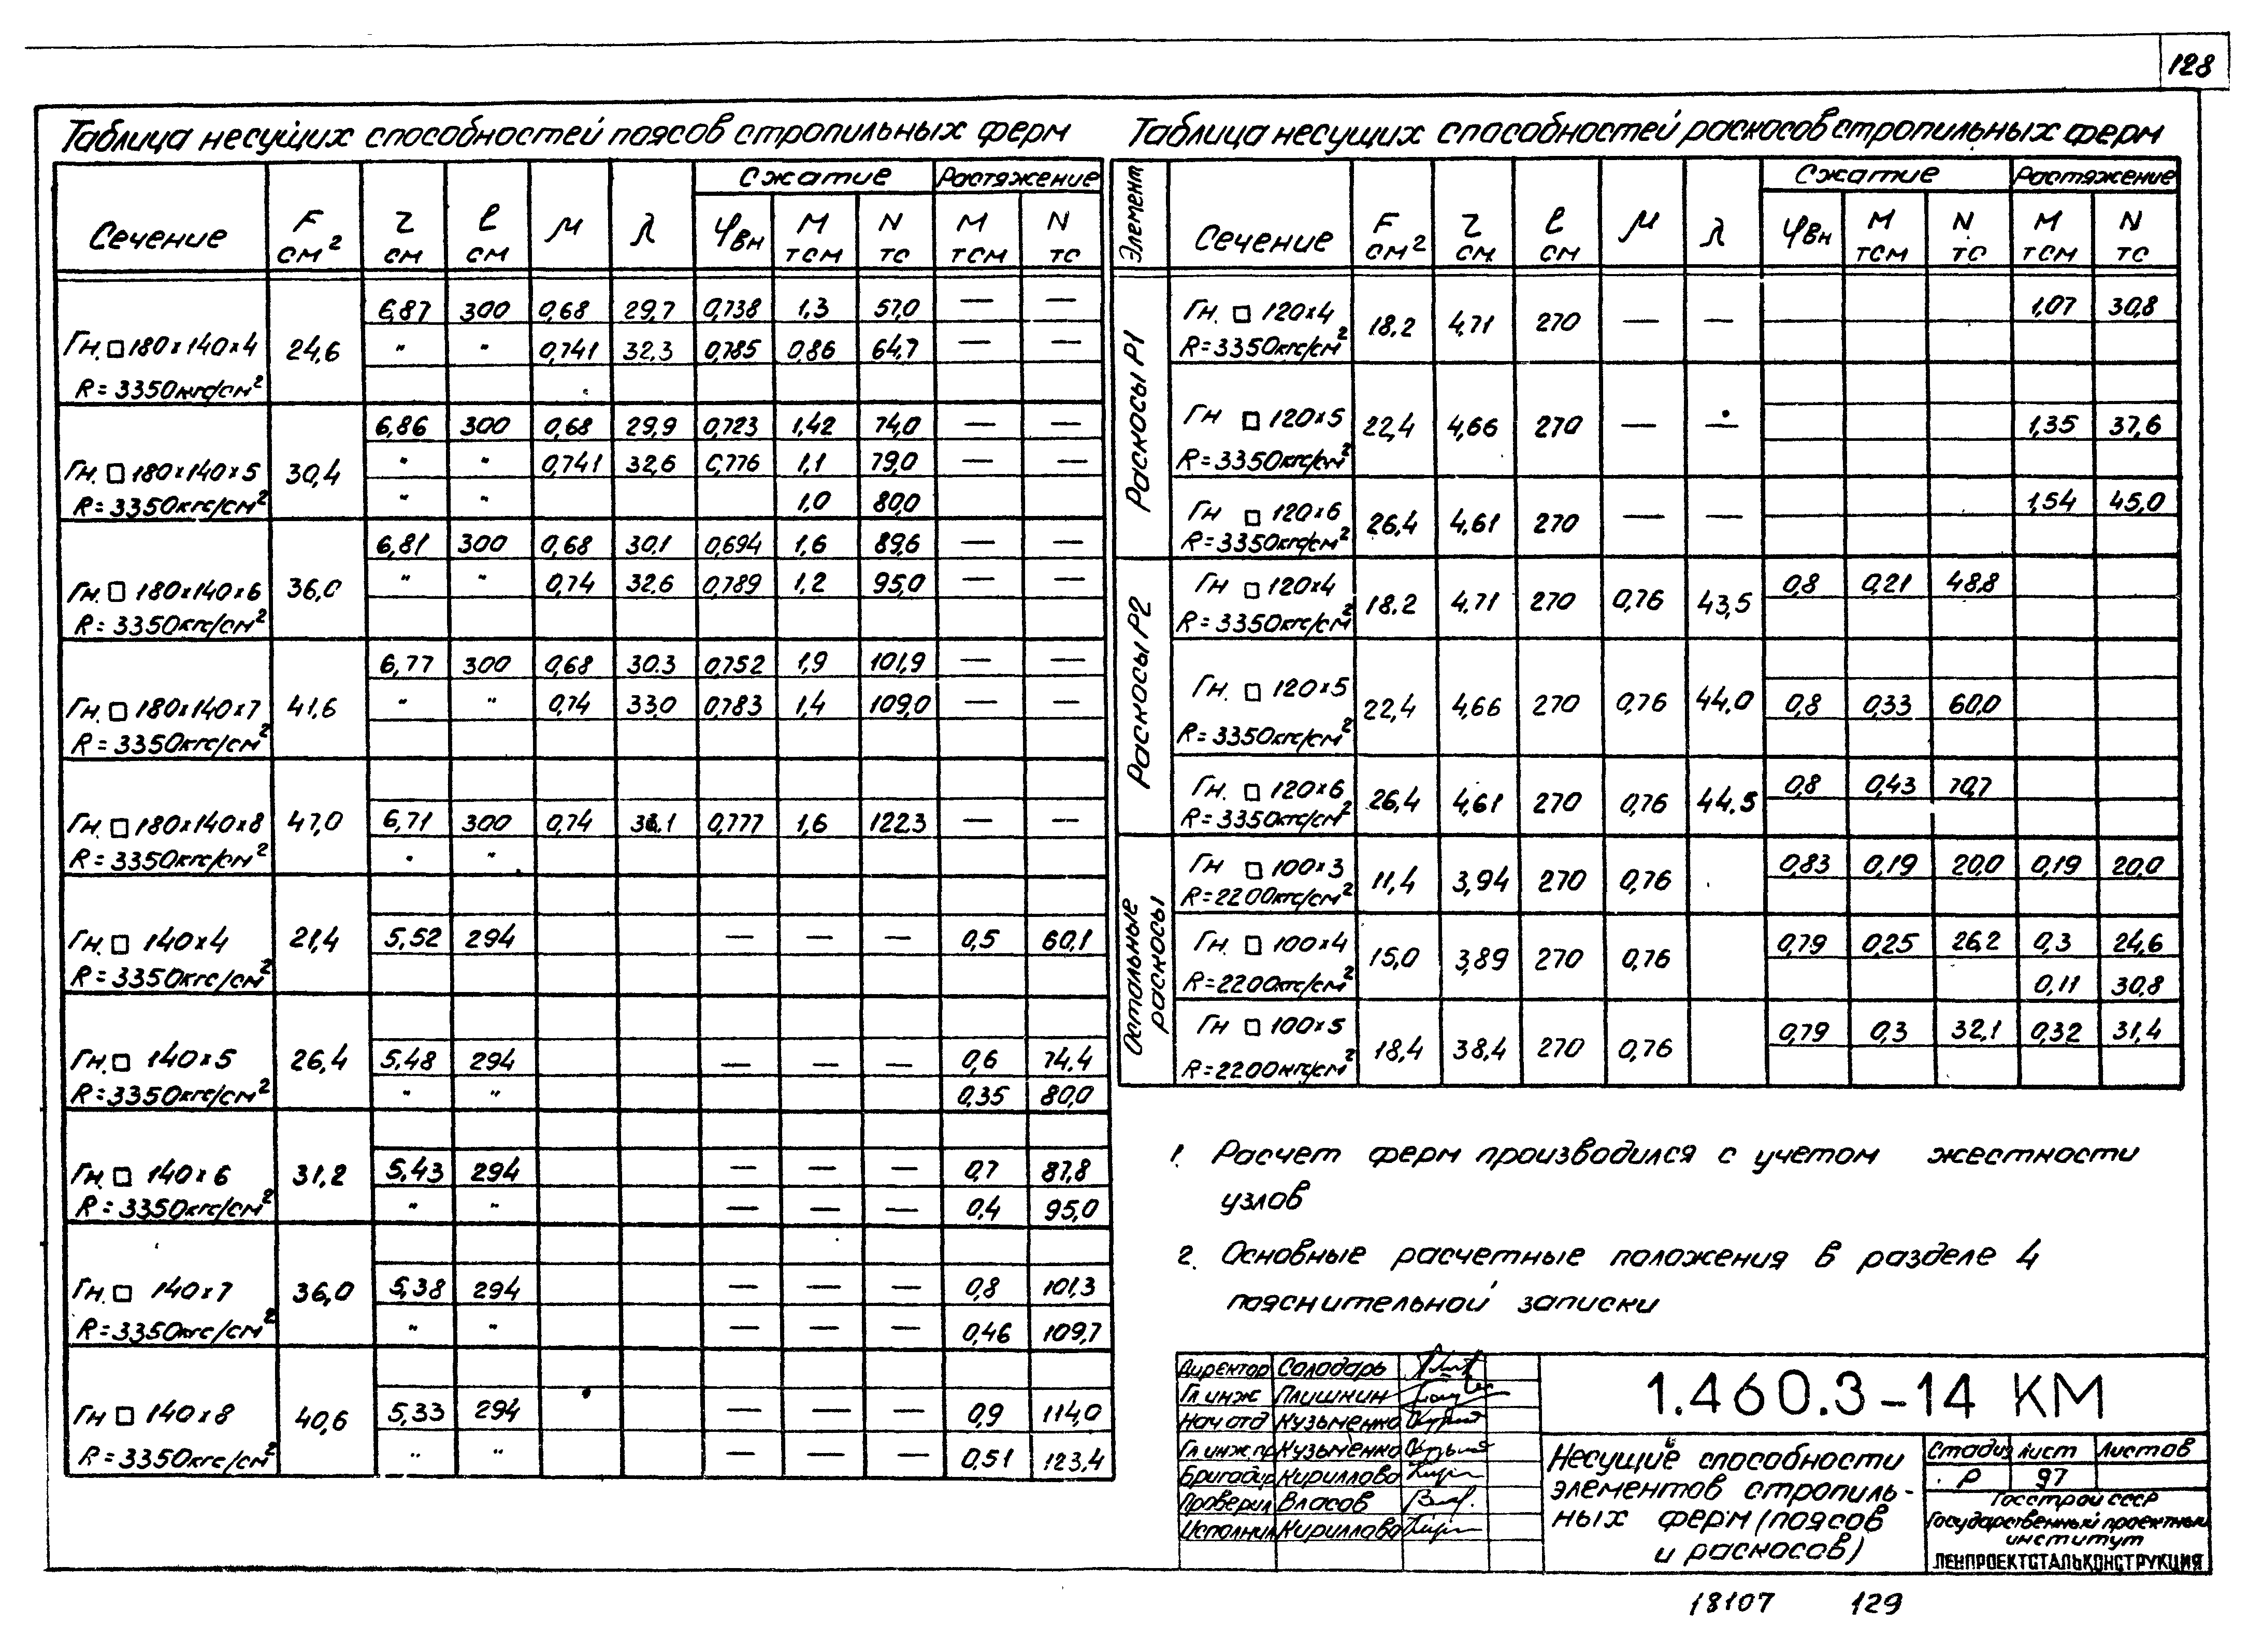 128
Таблица несущих способностей поясов стропильных ферм
Сечение F см² r см ℓ см μ λ Сжатие Растяжение
φвн М тсм N тс М тсм N тс
Гн. □ 180х140х4 24,6 6,87 300 0,68 29,7 0,738 1,3 57,0 — —
R=3350кгс/см² " " 0,741 32,3 0,785 0,86 64,7 — —
Гн. □ 180х140х5 30,4 6,86 300 0,68 29,9 0,723 1,42 74,0 — —
R=3350кгс/см² " " 0,741 32,6 0,776 1,1 79,0 — —
" " 1,0 80,0
Гн. □ 180х140х6 36,0 6,81 300 0,68 30,1 0,694 1,6 89,6 — —
R=3350кгс/см² " " 0,74 32,6 0,789 1,2 95,0 — —
Гн. □ 180х140х7 41,6 6,77 300 0,68 30.3 0,752 1,9 101,9 — —
R=3350кгс/см² " " 0,74 33,0 0,783 1,4 109,0 — —
Гн. □ 180х140х8 47,0 6,71 300 0,74 0,777 1,6 122,3 — —
R=3350кгс/см² " "
Гн. □ 140х4 21,4 5,52 294 — — — 0,5 60,1
R=3350кгс/см²
Гн. □ 140х5 26,4 5,48 294 — — — 0,6 74,4
R=3350кгс/см² " " 0,35 80,0
Гн. □ 140х6 31,2 5,43 294 — — — 0,7 87,8
R=3350кгс/см² " " — — — 0,4 95,0
Гн. □ 140х7 36,0 5,38 294 — — — 0,8 101,3
R=3350кгс/см² " " — — — 0,46 109,7
Гн □ 140х8 40,6 5,33 294 — — — 0,9 114,0
R=3350кгс/см² " " — — — 0,51 123,4
Таблица несущих способностей раскосов стропильных ферм
Элемент Сечение F см² r см ℓ см μ λ Сжатие Растяжение
φвн М тсм N тс М тсм N тс
Раскосы Р1
Гн. □ 120х4 18,2 4,71 270 — — 1,07 30,8
R=3350кгс/см²
Гн □ 120х5 22,4 4,66 270 — — 1,35 37,6
R=3350кгс/см²
Гн □ 120х6 26,4 4,61 270 — — 1,54 45,0
R=3350кгс/см²
Раскосы Р2
Гн □ 120х4 18.2 4,71 270 0,76 43,5 0,8 0,21 48,8
R=3350кгс/см²
Гн. □ 120х5 22,4 4,66 270 0,76 44,0 0,8 0,33 60,0
R=3350кгс/см²
Гн. □ 120х6 26,4 4,61 270 0,76 44.5 0,8 0,43 70,7
R=3350кгс/см²
Остальные раскосы
Гн □ 100х3 11,4 3,94 270 0,76 0,83 0,19 20,0 0,19 20,0
R=2200кгс/см²
Гн. □ 100х4 15,0 3,89 270 0,76 0,79 0,25 26,2 0,3 24,6
R=2200кгс/см² 0,11 30,8
Гн □ 100х5 18,4 38,4 270 0,76 0,79 0,3 32,1 0,32 31,4
R=2200кгс/см²
1. Расчет ферм производился с учетом жесткости
узлов
2. Основные расчетные положения в разделе 4
пояснительной записки
Директор Солодарь
Гл инж Плишкин
Нач отд Кузьменко
Гл инж пр Кузьменко
Бригадир Кириллова
Проверил Власов
Исполнил Кириллова
1.460.3-14 КМ
Несущие способности
элементов стропиль-
ных ферм (поясов
и раскосов)
Стадия Лист Листов
Р 97
Госстрой СССР
Государственный проектный
институт
ЛЕНПРОЕКТСТАЛЬКОНСТРУКЦИЯ
18107 129